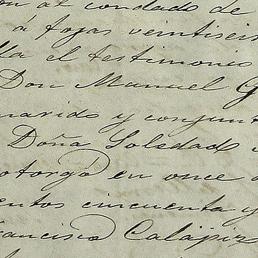 on al condado de
á fojas veintiseis
lla el testimonio
Don Manuel G
marido y conjunt
Doña Soledad
otorgó en once d
entos cincuenta y
rancisco Calápiz